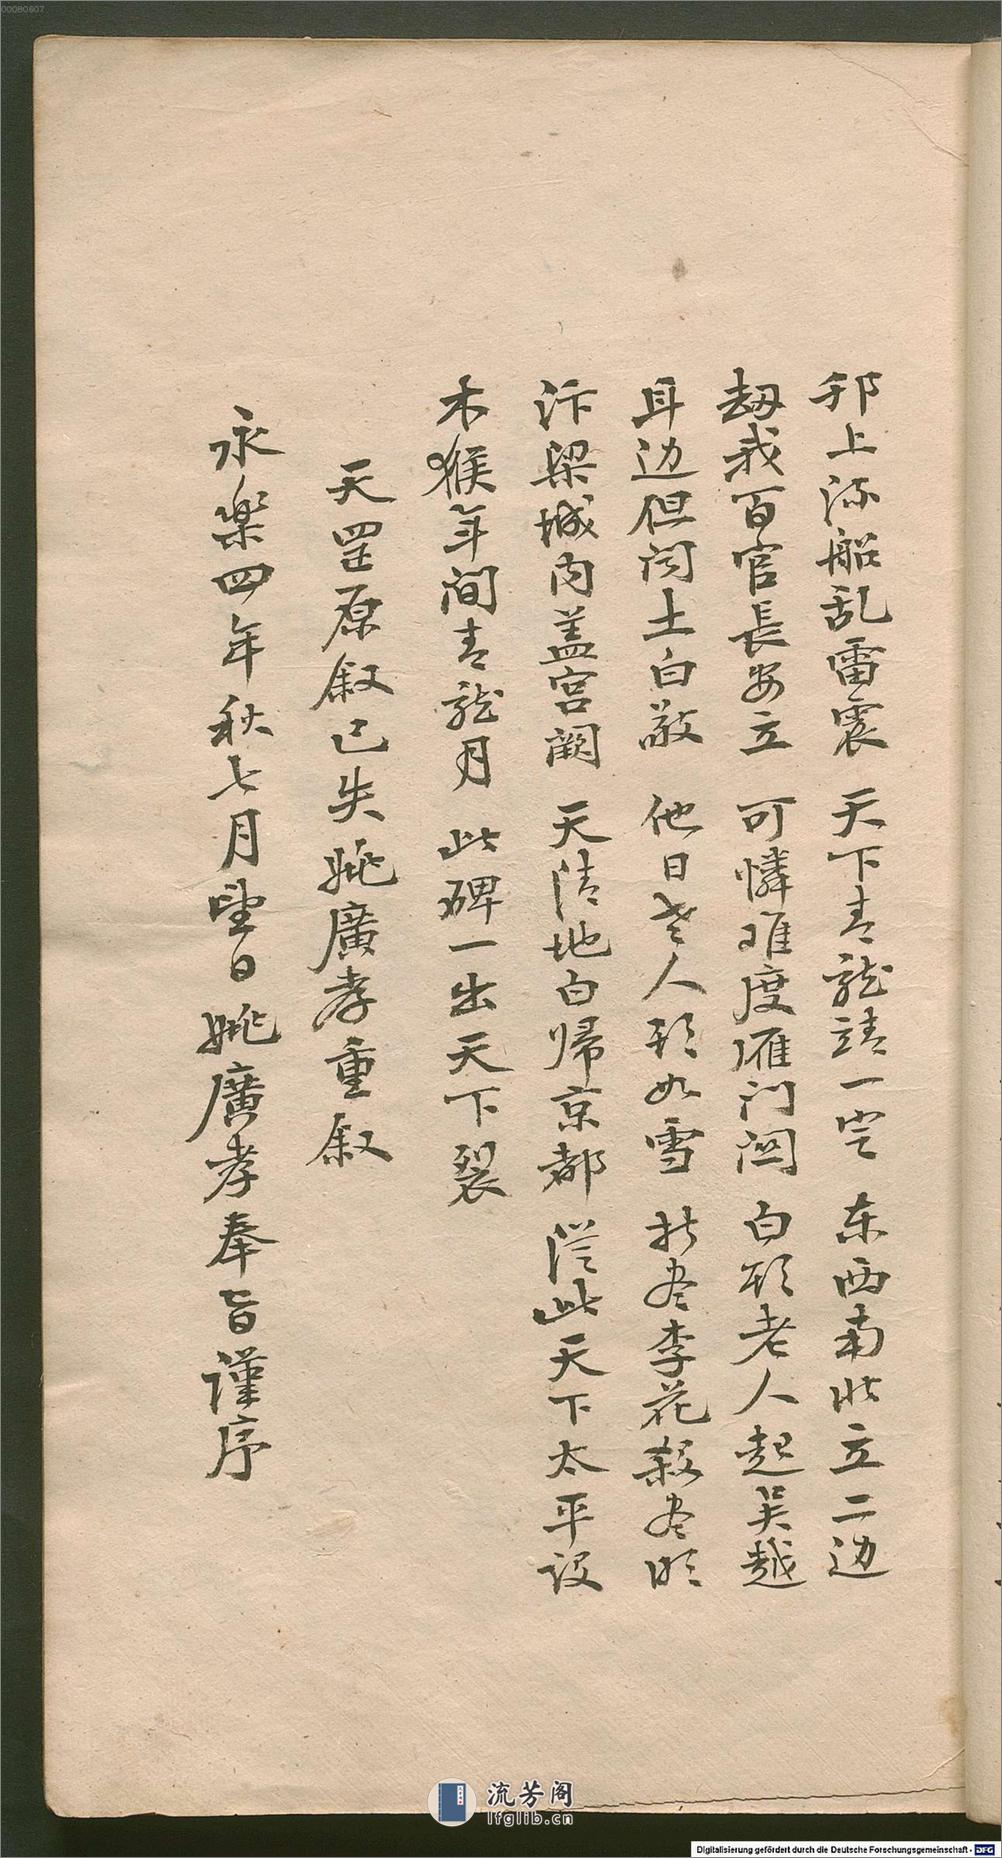 00080607
邗上流船乱雷震 天下青龙靖一空 东西南北立二边
劫我百官長安立 可憐难度雁门関 白头老人起吴越
耳边但闻土白敲 他日老人头如雪 折尽李花殺尽
汴梁城内盖宫闕 天清地白帰京都 從此天下太平设
木猴年间青龙月 此碑一出天下裂
天罡原叙已失姚廣孝重叙
永樂四年秋七月望日姚廣孝奉旨谨序
流芳阁
lfglib.cn
Digitalisierung gefördert durch die Deutsche Forschungsgemeinschaft - DFG